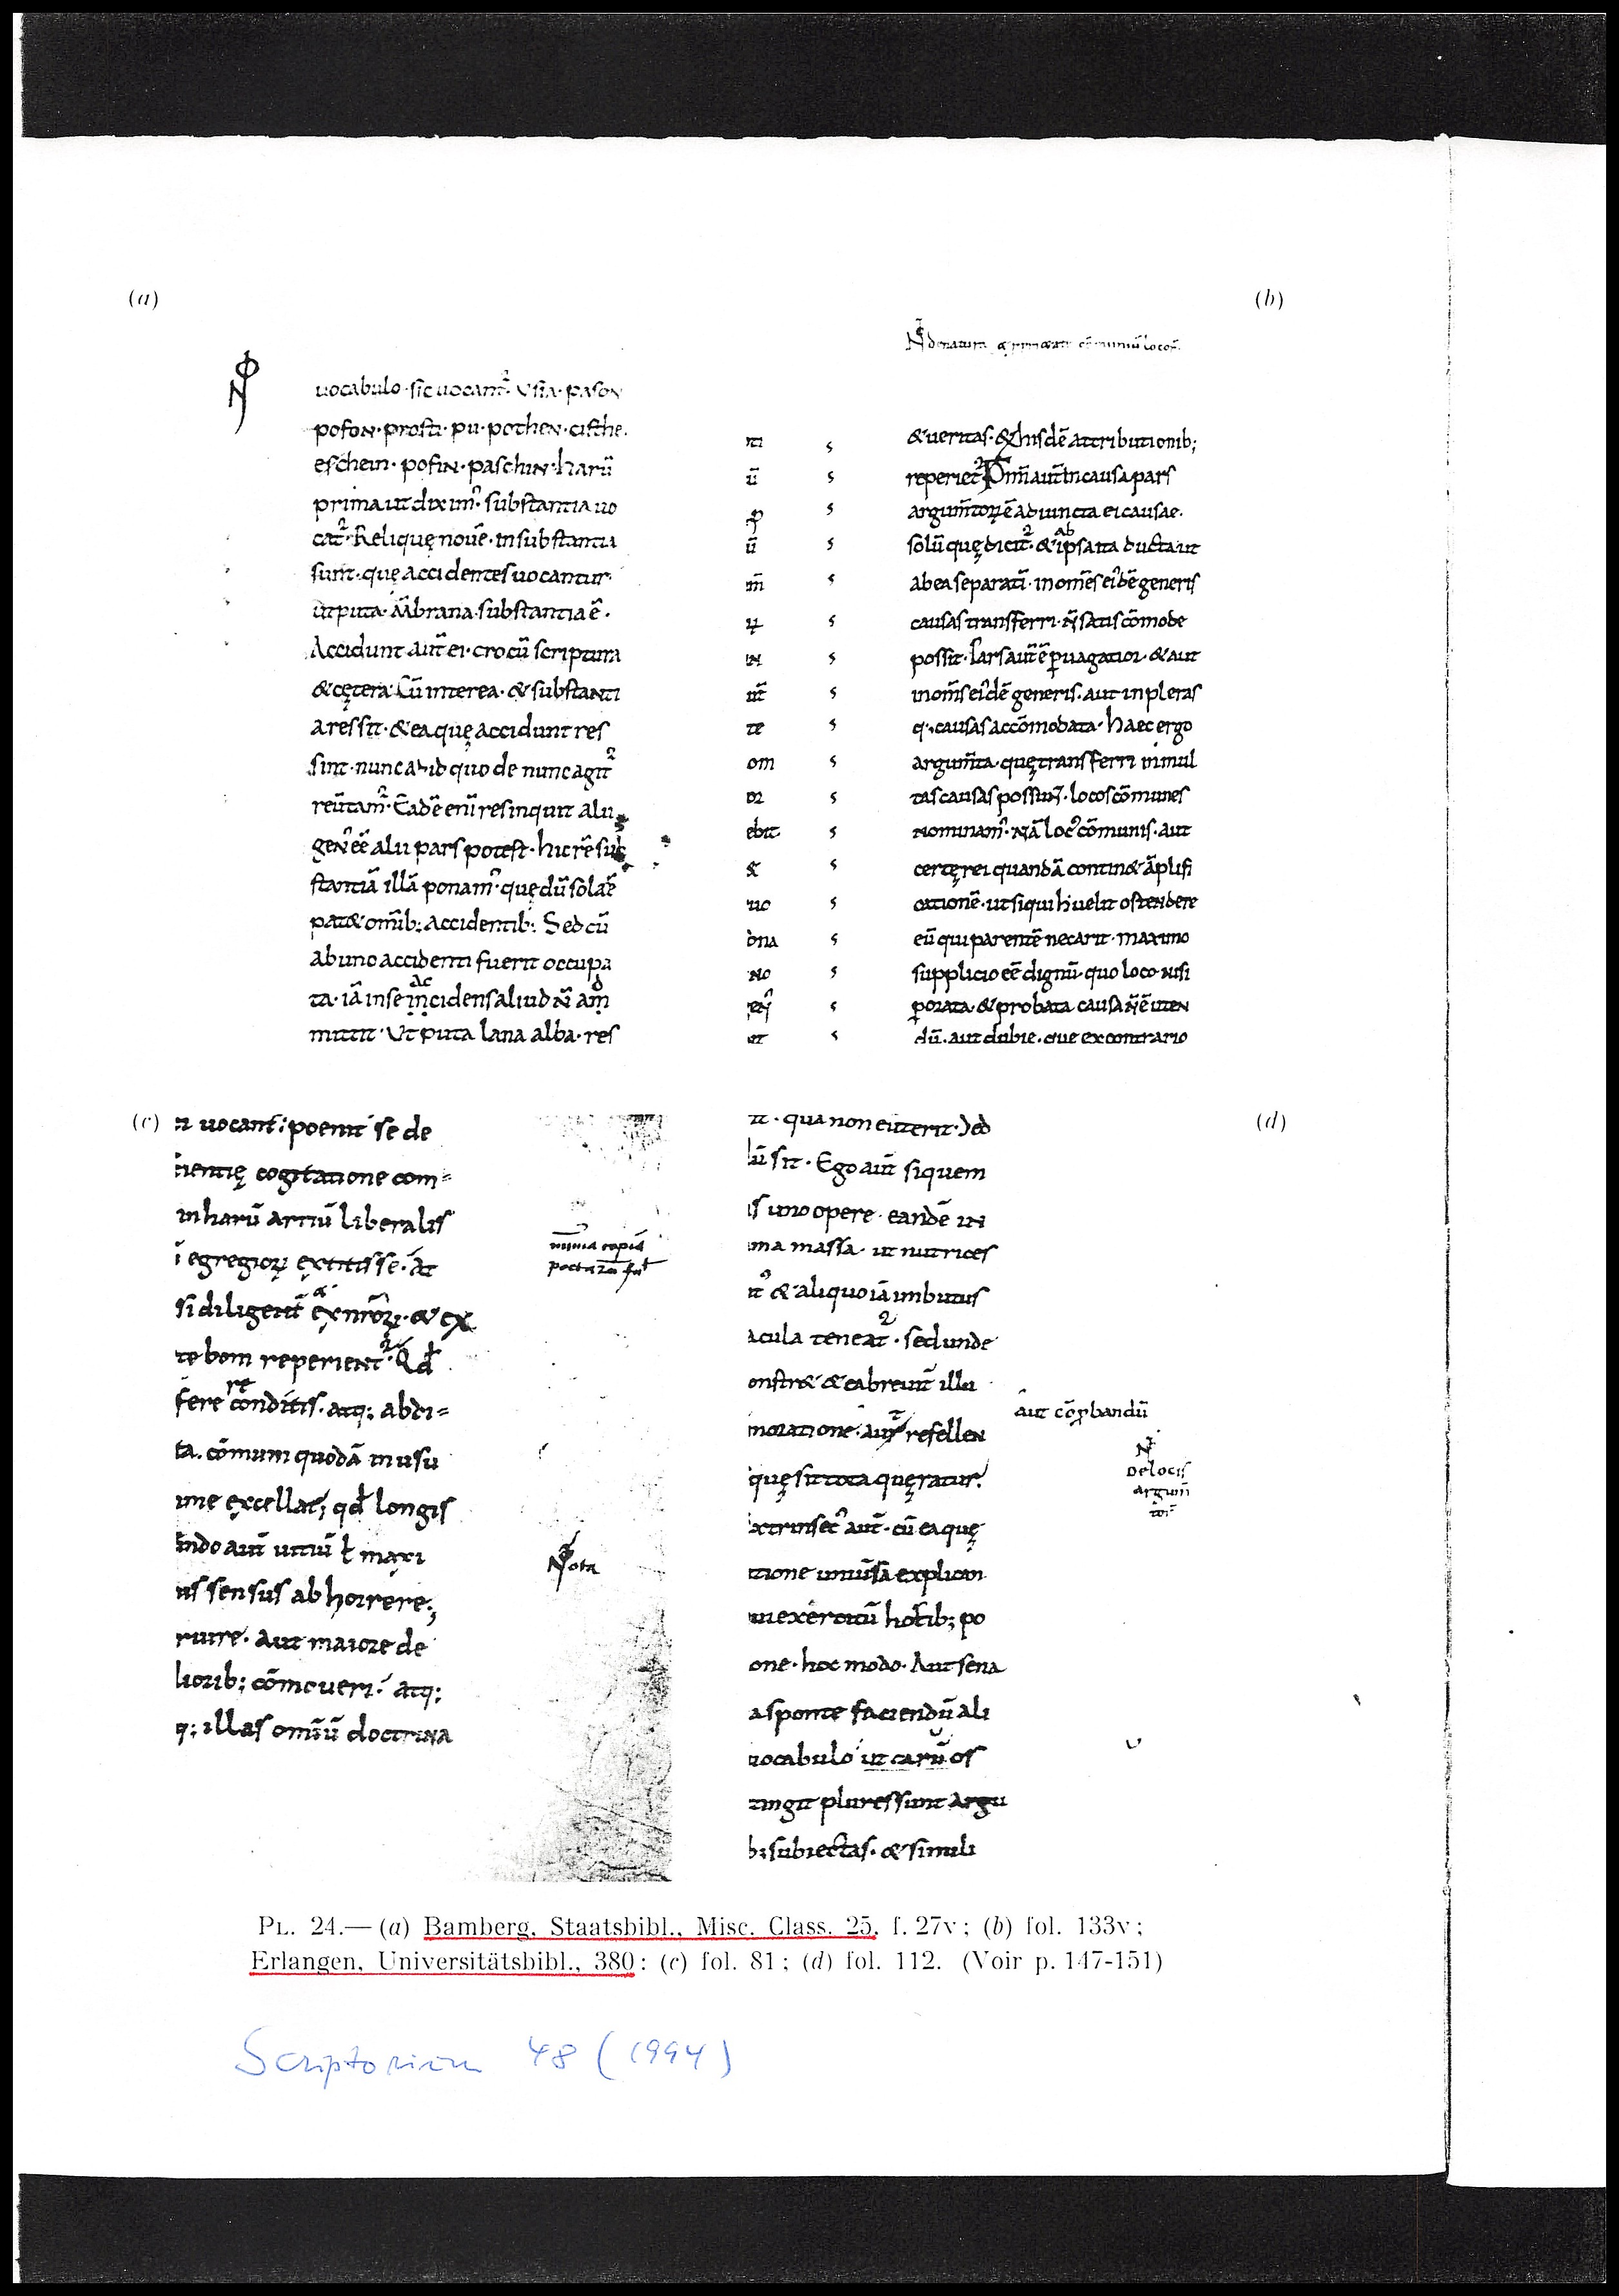 (a)
uocabulo · sic uocant᷑ · Vsia · pason
poson · prosti · pu · pothen · cisthe ·
eschein · pofin · paschin · harū
prima ut diximꝰ substantia uo
cat᷑ · Relique nouē · in substantia
sunt · quę accidentes uocantur
utputa · mābrana · substantia ē ·
Accidunt aūt ei · crocū scriptura
& cętera · Cū interea · & substanti
a res sit · & ea quę accidunt res
sint · nunc ad id quo de nunc agit᷑
reūtamꝰ · Eādē enī res inquit alii
genꝰ eē alii pars potest · hic rē sub
stantiā illā ponamꝰ · quę dū sola ē
pat& omīb; accidentib; Sed cū
ab uno accidenti fuerit occupa
ac
ta · iā in se incidens aliud n̄ am
mittit · Vt puta lana alba · res
(b)
& ueritas · & hisdē attributionib;
reperiet᷑ Om̄i aūt in causa pars
argum̄torꝝ ē adiuncta ei causae ·
ab
solū quę dicit᷑ · & ipsa ita ducta ut
ab ea separatī · in om̄es ei'dē generis
causas transferri · n̄ satis cōmode
possit · Pars aūt ē ꝑuagatior · & aut
in om̄s ei'dē generis · aut in pleras
q · causas accōmodata · haec ergo
argum̄ta · quę transferri in mul
tas causas possunt · locos cōmunes
nominamꝰ · Nā locꝰ cōmunis · aut
certę rei quandā contin& āplifi
cationē · ut siqui h' uelit ostendere
eū qui parentē necarit · maximo
supplicio eē dignū · quo loco nisi
ꝑorata · & probata causa n̄ ē uten
dū · aut dubie · que ex contrario
ti
ū
ū
m̄
te
om
ebit
uo
ona
no
(c)
uocant᷑ : poenit se de
tientię cogitatione com=
in harū artiū liberalis
egregiorꝝ extitisse · At
si diligent᷑ ex nr̄orꝝ · & ex
to bom reperient᷑ · Qd̄
re
fere conditis · atq; abdi=
ta · cōmuni quodā in usu
ime excellat; qd̄ longis
indo aūt uitiū ł maxi
us sensus abhorrere;
ruire · aut maiore de
liorib; cōmoueri · atq;
q; illas omīū doctrina
nimia copia
Nota
(d)
it · qua non euterit · Sed
lū sit · Ego aūt siquem
is uno opere · eandē in
ma massa · ut nutrices
tꝰ & aliquo iā imbutus
acula teneat᷑ · sed unde
onstr& & ea breuit᷑ illa
moratione · aut refellen
quę sit tota quęratur ·
xtrinsecꝰ aūt · cū ea quę
tione uniūsa explican
in exercitū hostib; po
one · hoc modo · Aut sena
a sponte faciendū ali
uocabulo ut carū os
tingit plures sunt Argu
b; subiectas · & simili
aut cōꝓbandū
De locis
argum̄
PL. 24.— (a) Bamberg, Staatsbibl., Misc. Class. 25, f. 27v; (b) fol. 133v;
Erlangen, Universitätsbibl., 380: (c) fol. 81; (d) fol. 112. (Voir p. 147-151)
Scriptorium 48 (1994)